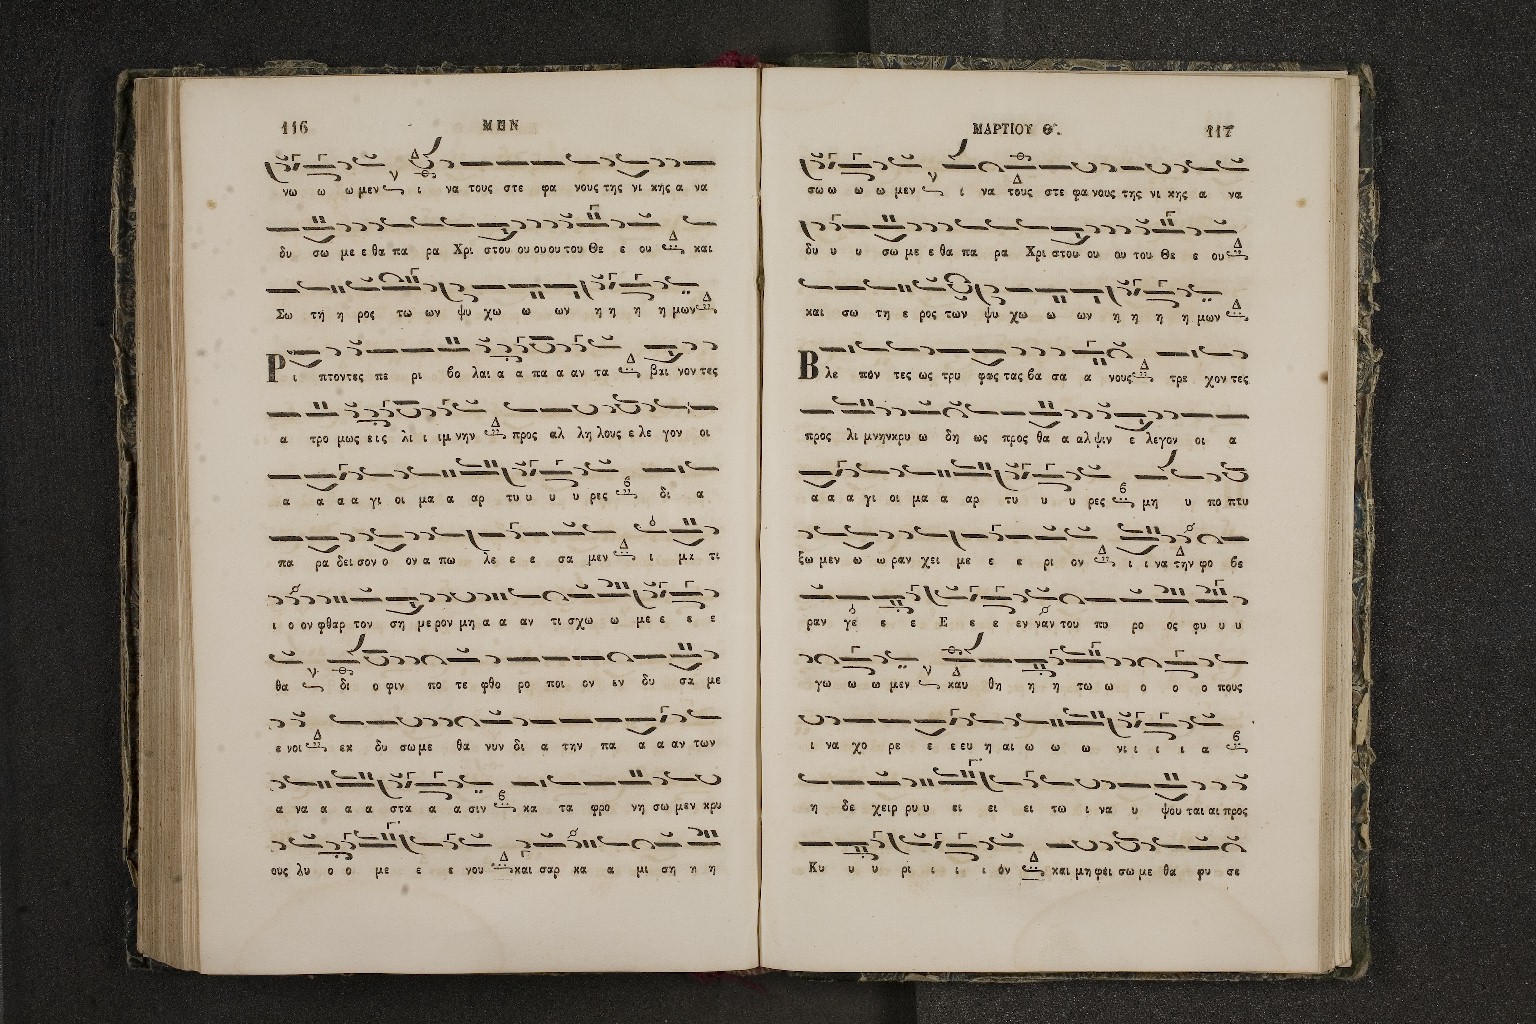 116
ΜΗΝ
νω ω ω μεν ι να τους στε φα νους της νι κης α να
δυ σω με ε θα πα ρα Χρι στου ου ου ου του Θε ε ου και
Σω τη η ρος τω ων ψυ χω ω ων η η η η μων
Ρι πτοντες πε ρι βο λαι α α πα α αν τα βαι νον τες
α τρο μως εις λι ι ιμ νην προς αλ λη λους ε λε γον οι
α α α α γι οι μα α αρ τυ υ υ υ ρες δι α
πα ρα δει σον ο ον α πω λε ε ε σα μεν ι μα τι
ι ο ον φθαρ τον ση με ρον μη α α αν τι σχω ω με ε ε ε
θα δι ο φιν πο τε φθο ρο ποι ον εν δυ σα με
ε νοι εκ δυ σω με θα νυν δι α την πα α α αν των
α να α α α στα α α σιν κα τα φρο νη σω μεν κρυ
ους λυ ο ο με ε ε νου και σαρ κα α μι ση η η
ΜΑΡΤΙΟΥ Θ.
117
σω ω ω ω μεν ι να τους στε φα νους της νι κης α να
δυ υ υ σω με ε θα πα ρα Χρι στου ου ου του Θε ε ου
και σω τη ε ρος των ψυ χω ω ων η η η η μων
Βλε πον τες ως τρυ φας τας βα σα α νους τρε χον τες
προς λι μνην κρυ ω δη ως προς θα α αλ ψιν ε λεγον οι α
α α α γι οι μα α αρ τυ υ υ ρες μη υ πο πτυ
ξω μεν ω ω ραν χει με ε ε ρι ον ι ι να την φο βε
ραν γε ε ε Ε ε ε εν ναν του πυ ρο ος φυ υ υ
γω ω ω μεν καυ θη η η τω ω ο ο ο πους
ι να χο ρε ε ε ευ η αι ω ω ω νι ι ι ι α
η δε χειρ ρυ υ ει ει ει τω ι να υ ψου ται αι προς
Κυ υ υ ρι ι ι ι όν και μη φει σω με θα φυ σε